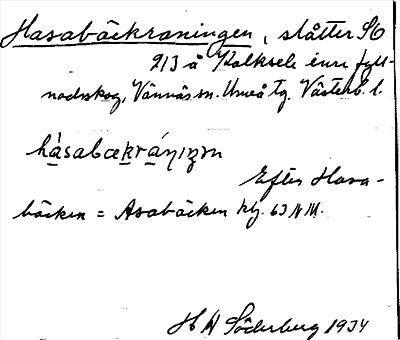 Hasabäckraningen, slåtter SO
213 å Kolksele inre fjäll-
nadsskog, Vännäs sn. Umeå tg. Västerb. l.
hàsabækráṇiŋən
Efter Hasa-
bäcken = Asabäcken kbl. 63 N M.
H H Söderberg 1934